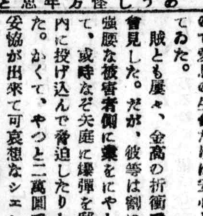 てゐた。
賊とも屢々、金高の折衝
會見した。だが、彼等は割に
強腰な被害者側に業をにやし
て、或時なぞ矢庭に爆彈を
內に投げ込んで脅迫したり
た。かくて、やつと二萬圓
妥協が出來て可哀想なシェ